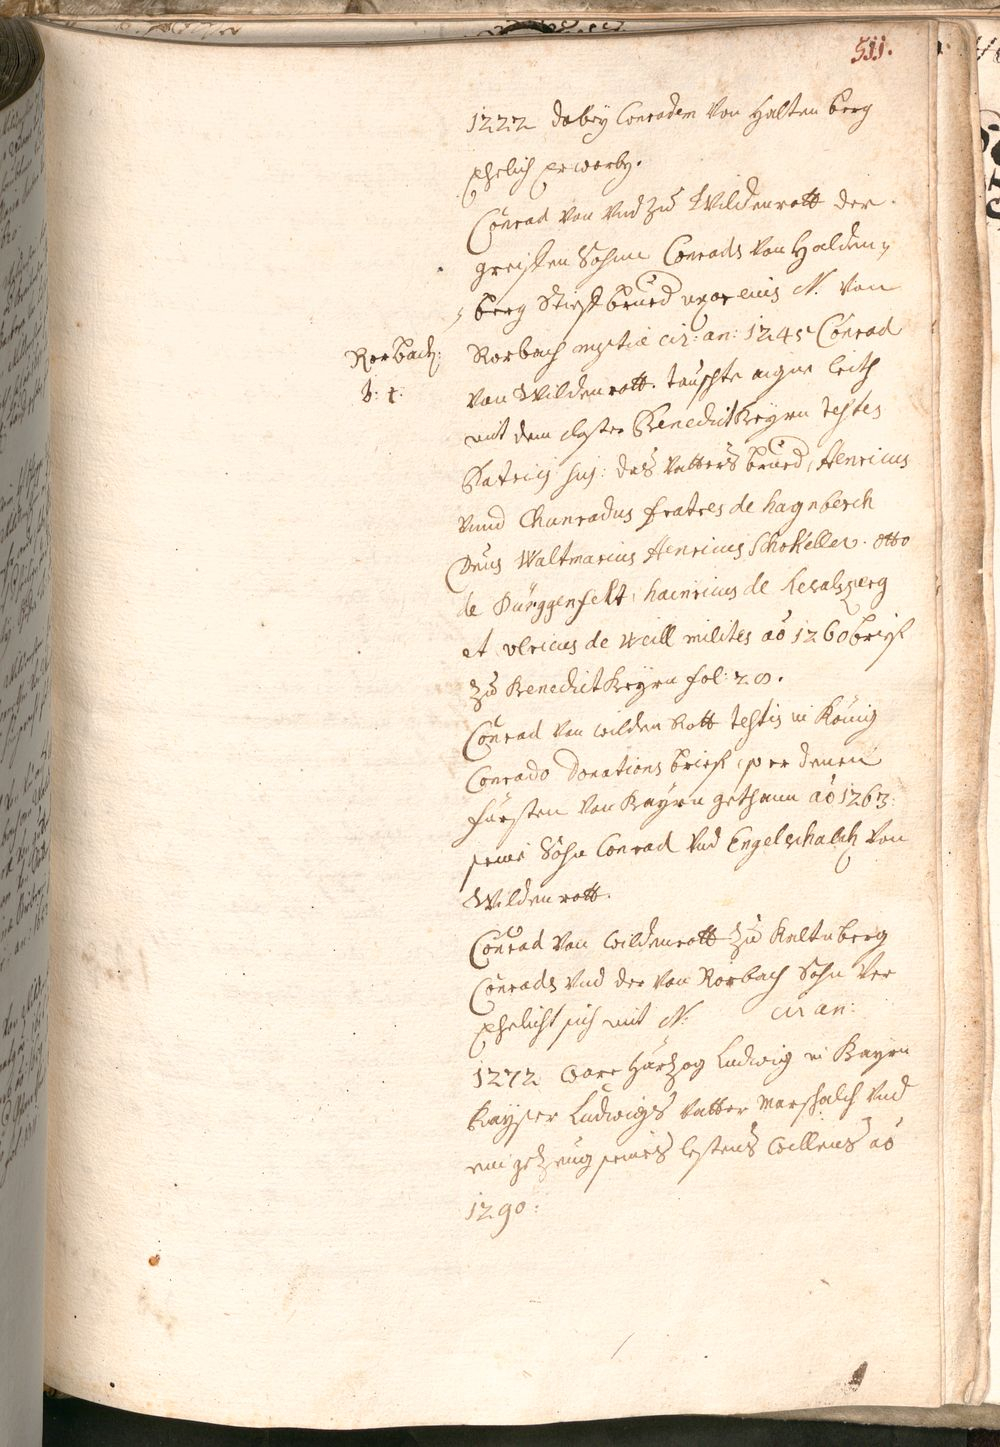 511.
1222 dabeÿ Conraden von Haltenberg
Ehelich erworben.
Conrad von und zu Wildenrott der
greissen Sohne Conrads von Halden=
=berg Stieff brued uxor eius N. von
Rorbach
Rorbach cir: an: 1245 Conrad
von Wildenrott. tauschte aigne leith
mit dem closter Benedict Beÿrn testes
Patricij sui: des vatters brued, Henricus
vnnd Chunradus fratres de hagnberch
Waltmarius Henricus otto
de Burggenfelt, hainricus de
et vlricus de Weill milites aõ 1260 brief
zu Benedict Beÿrn fol: 28.
Conrad von wilden Rott testis in König
Conrado Donations brief, so er denen
fürsten von Baÿrn gethann aõ 1263.
seine Söhn Conrad vnd Engelschalch von
Wildenrott.
Conrad von wildenrott zu Kaltnberg
Conrads vnd der von Rorbach Sohn ver
Ehelicht sich mit N: cir an:
1272 ware Hertzog Ludwig in Baÿrn
Kaÿser Ludwigs vatter Marschalch vnd
ein gezeug seines lestens willens aõ
1290: